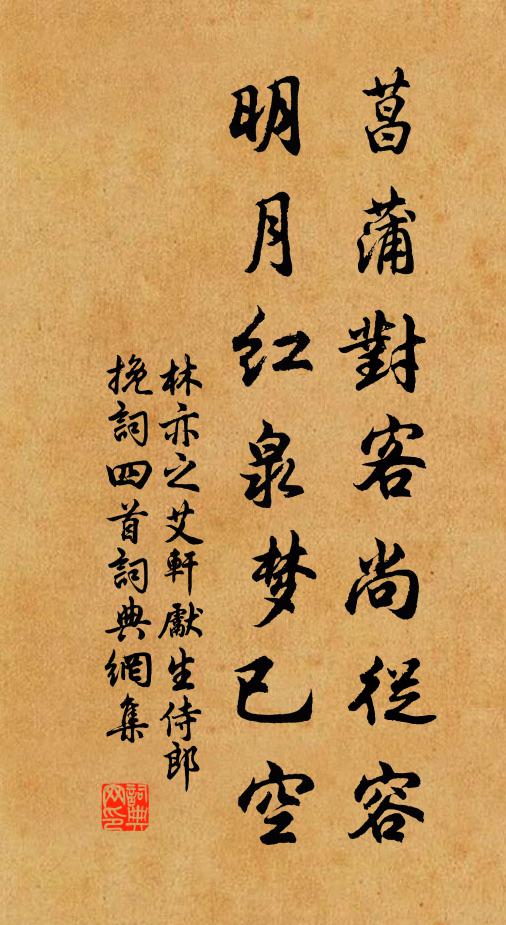 菖蒲對客尚從容
明月红泉梦已空
林亦之艾軒獻生侍郎
挽詞四首詞典網集
詞典網印